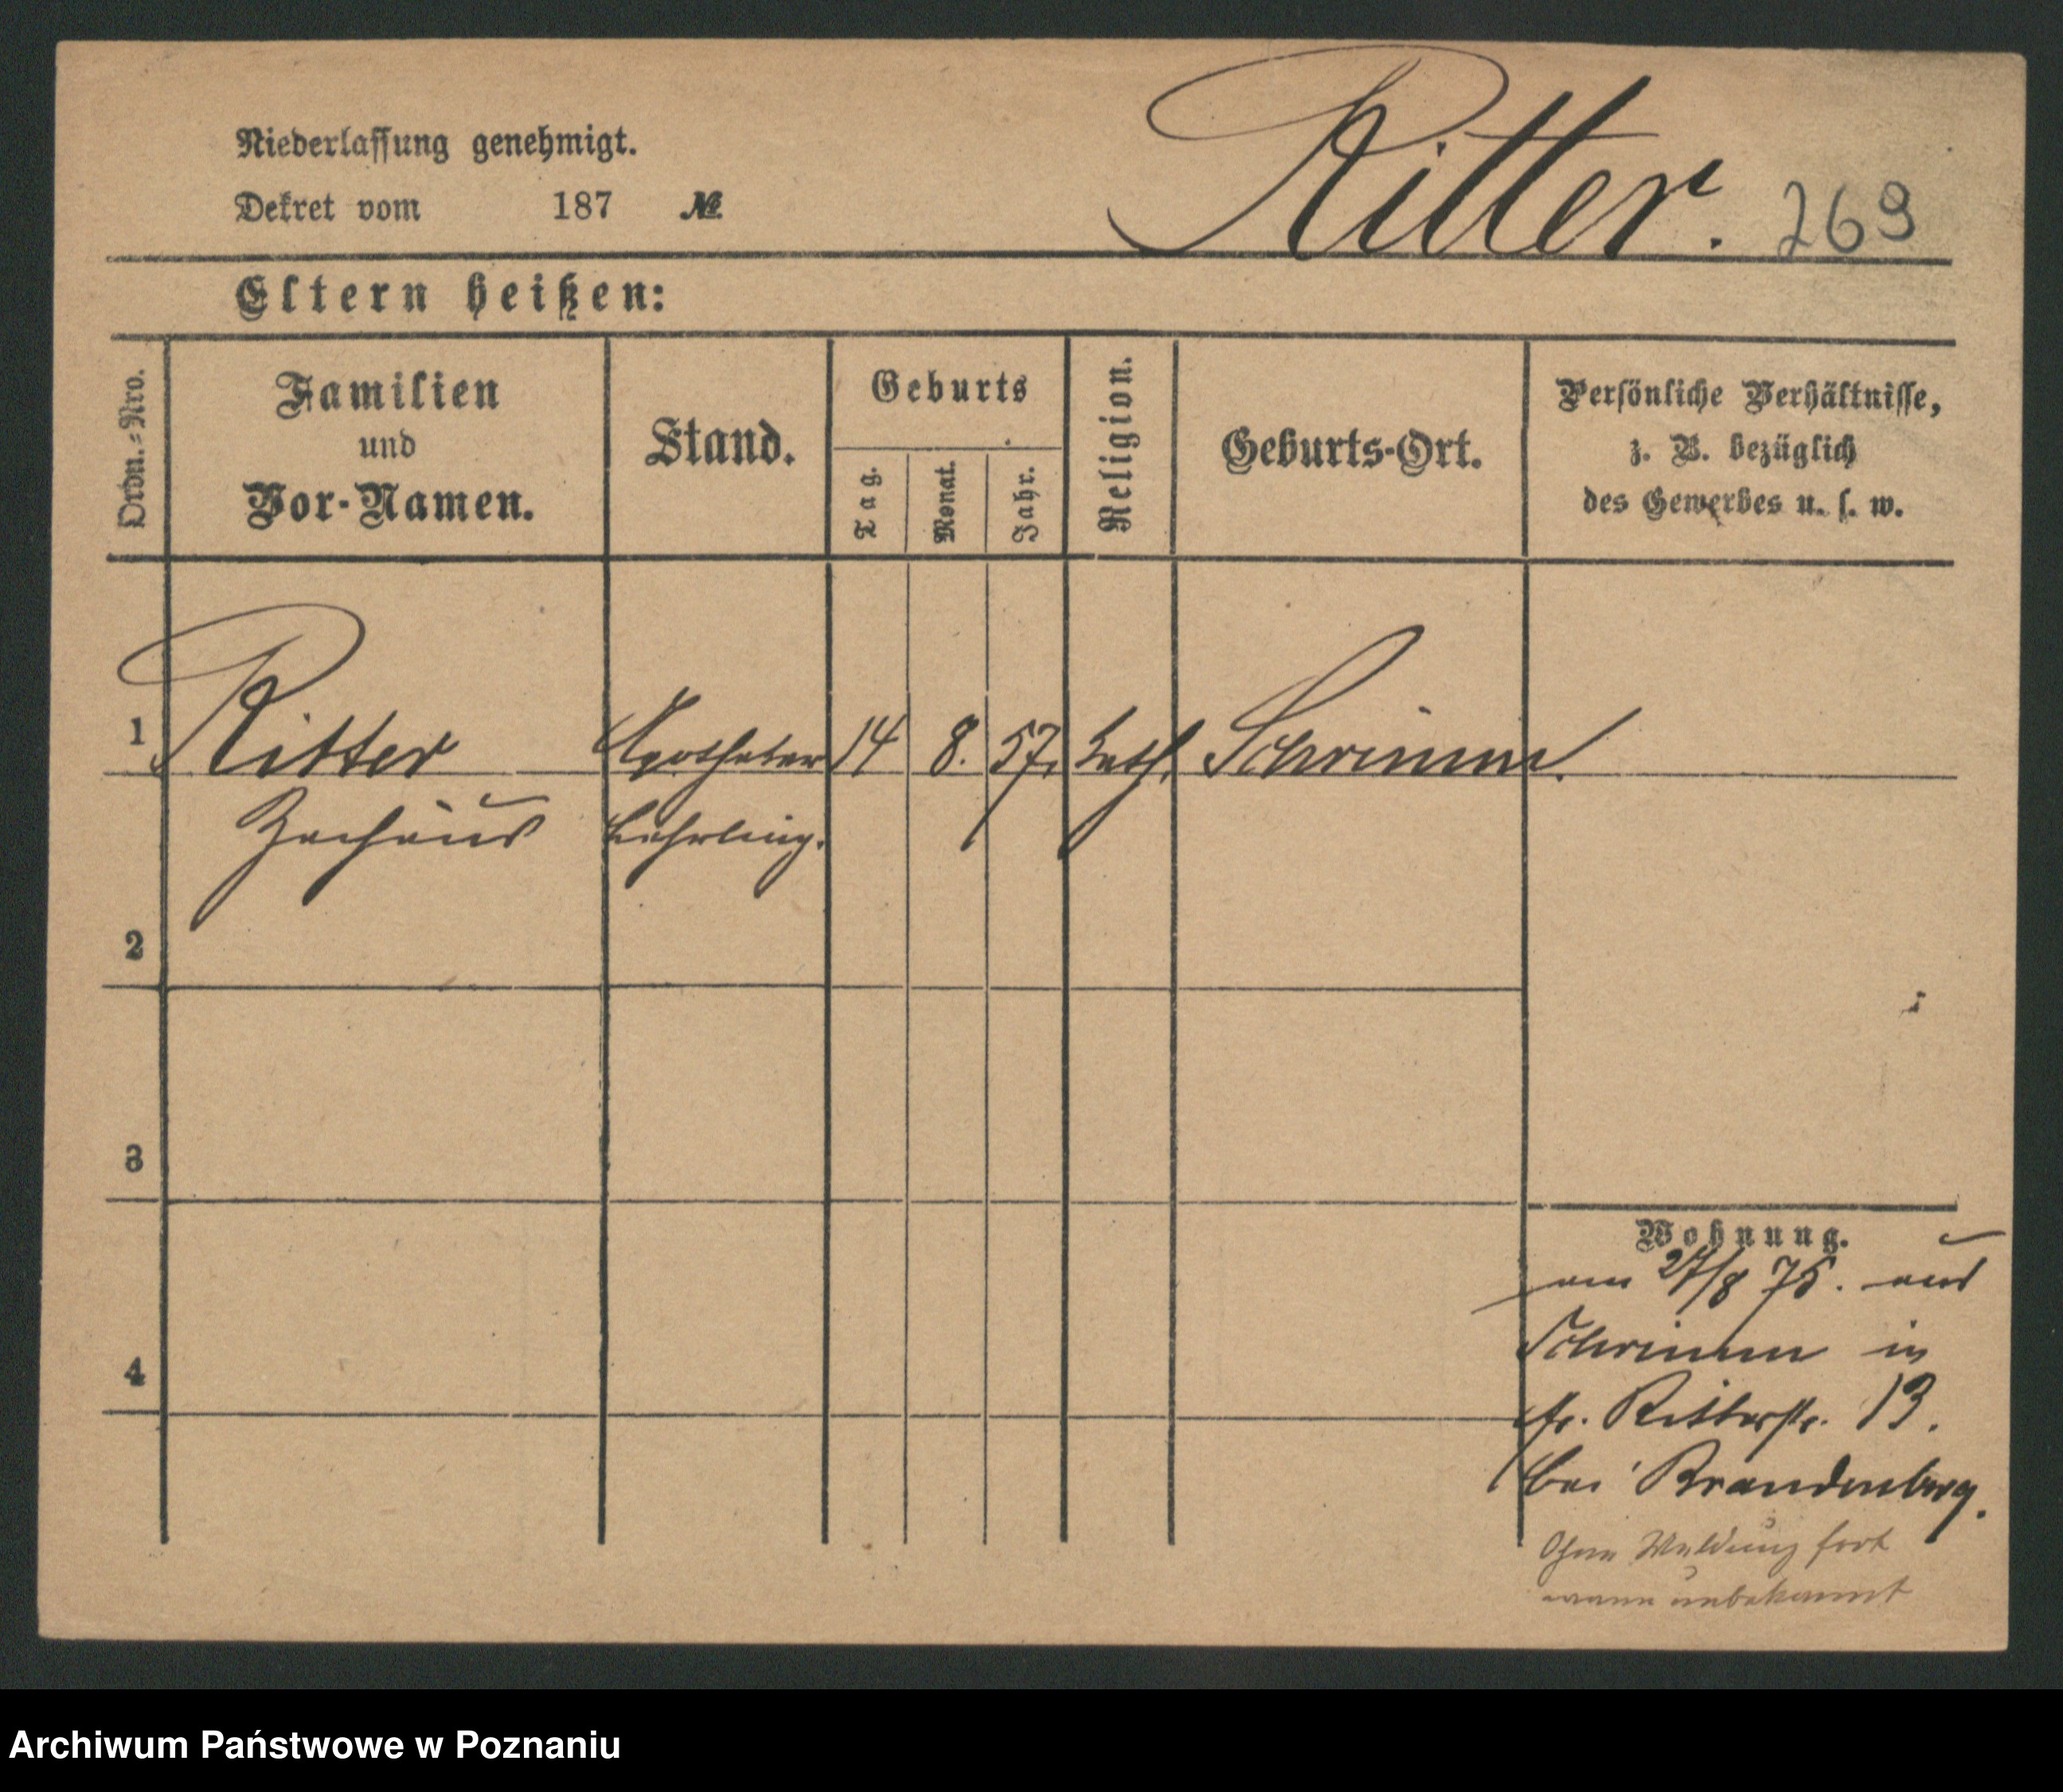 Niederlassung genehmigt.
Dekret vom 187 №
Ritter. 269
Eltern heißen:
Ordn.=Nro.
Familien
und
Vor-Namen.
Stand.
Geburts
Tag.
Monat.
Jahr.
Religion.
Geburts-Ort.
Persönliche Verhältnisse,
z. B. bezüglich
des Gewerbes u. s. w.
1 Ritter Apotheker 14 8. 57. kath. Schrimm.
Zachäus Lehrling.
2
3
4
Wohnung.
am 27/8 75. aus
Schrimm in
kl. Ritterstr. 13.
bei Brandenburg.
Ohne Meldung fort
wann unbekannt
Archiwum Państwowe w Poznaniu